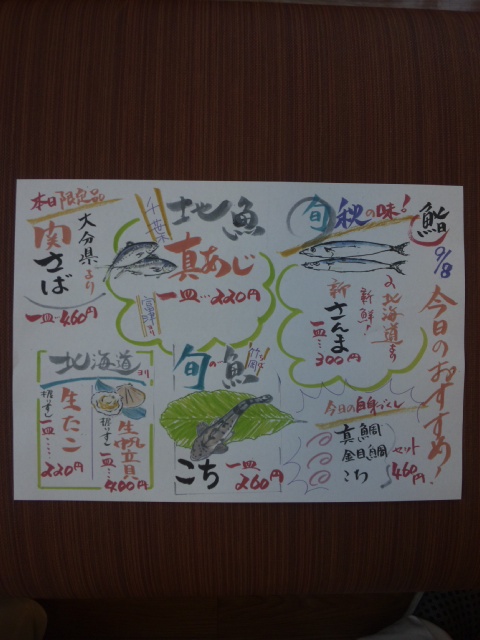 鮨
9/8
今日のおすすめ!
旬 秋の味!
北海道より
新鮮!
新さんま
一皿…300円
今日の白身づくし
真鯛
金目鯛
こち
セット
460円
地魚
千葉
富津
真あじ
一皿…220円
旬の魚
竹岡
こち
一皿…260円
本日限定品
大分県より
関さば
一皿…460円
北海道より
生たこ
握りずし
一皿……
220円
生帆立貝
握りずし
一皿…
400円